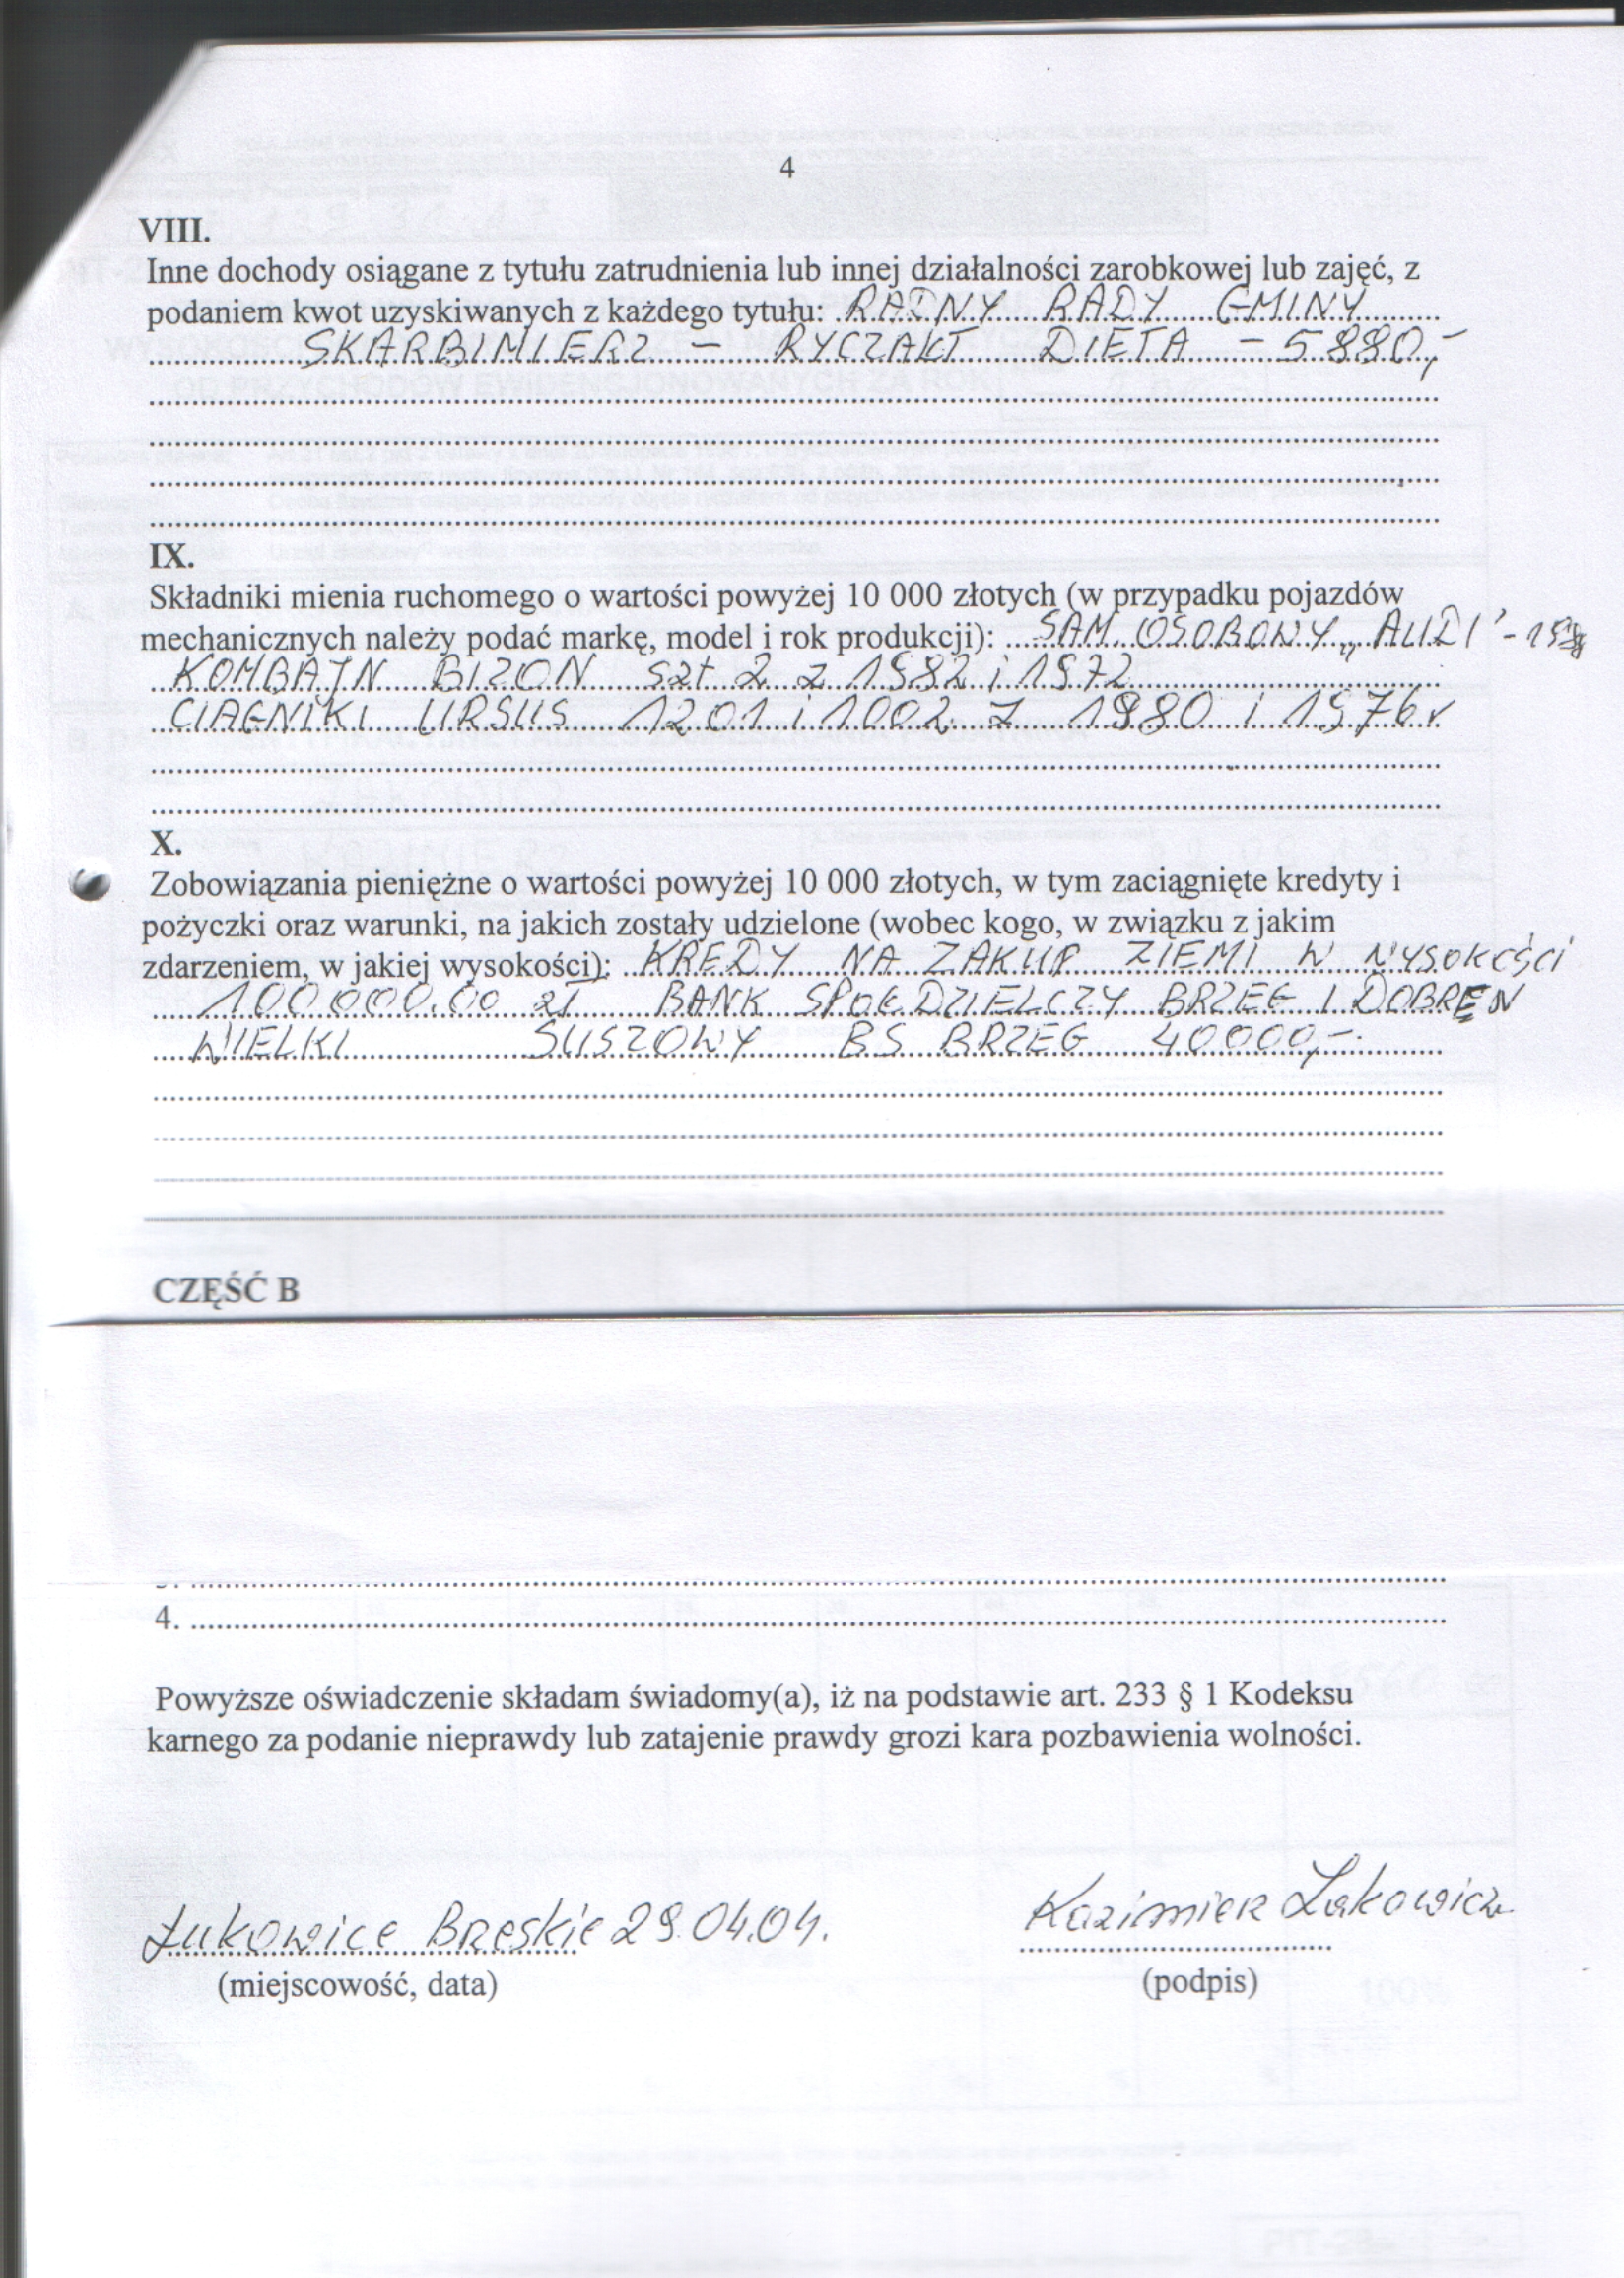 4
VIII.
Inne dochody osiągane z tytułu zatrudnienia lub innej działalności zarobkowej lub zajęć, z
podaniem kwot uzyskiwanych z każdego tytułu: RADNY RADY GMINY
SKARBIMIERZ – RYCZAŁT DIETA –
IX.
Składniki mienia ruchomego o wartości powyżej 10 000 złotych (w przypadku pojazdów
mechanicznych należy podać markę, model i rok produkcji): SAM. OSOBOWY „AUDI" -
KOMBAJN BIZON szt 2 z 1982 i 1972
CIAGNIKI URSUS 1201 i 1002 z 1980 i 1976r
X.
Zobowiązania pieniężne o wartości powyżej 10 000 złotych, w tym zaciągnięte kredyty i
pożyczki oraz warunki, na jakich zostały udzielone (wobec kogo, w związku z jakim
zdarzeniem, w jakiej wysokości): KREDY NA ZAKUP ZIEMI W WYSOKOŚCI
100000.00 zł BANK SPOŁDZIELCZY BRZEG I DOBRĘN
WIELKI SUSZOWY BS BRZEG 40000,-
CZĘŚĆ B
4.
Powyższe oświadczenie składam świadomy(a), iż na podstawie art. 233 § 1 Kodeksu
karnego za podanie nieprawdy lub zatajenie prawdy grozi kara pozbawienia wolności.
Łukowice Brzeskie 29.04.04. Kazimierz Lakowicz
(miejscowość, data) (podpis)